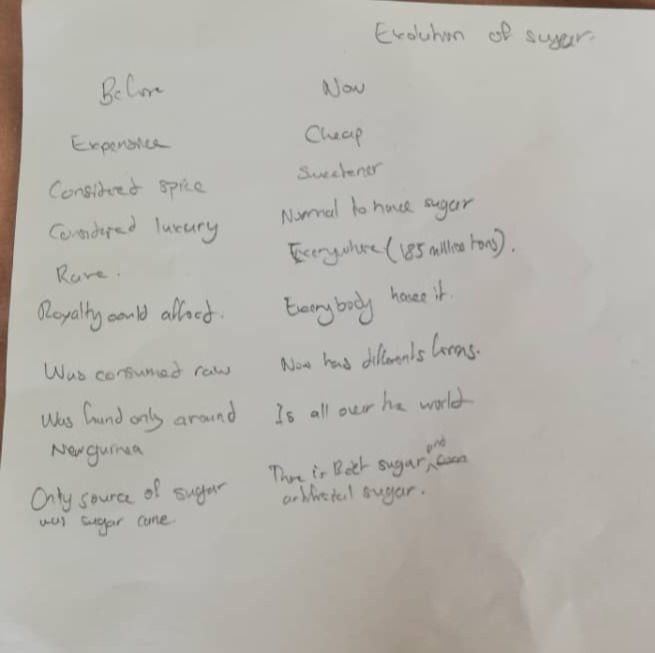 Evolution of sugar.
Before Now
Expensive Cheap
Considered spice Sweetener
Considered luxury Normal to have sugar
Rare. Everywhere (185 million tons).
Royalty could affort. Everybody have it.
Was consumed raw Now has differents forms.
Was found only around Is all over the world
New guinea
There is Beet sugar and
Only source of sugar artificial sugar.
was sugar cane.